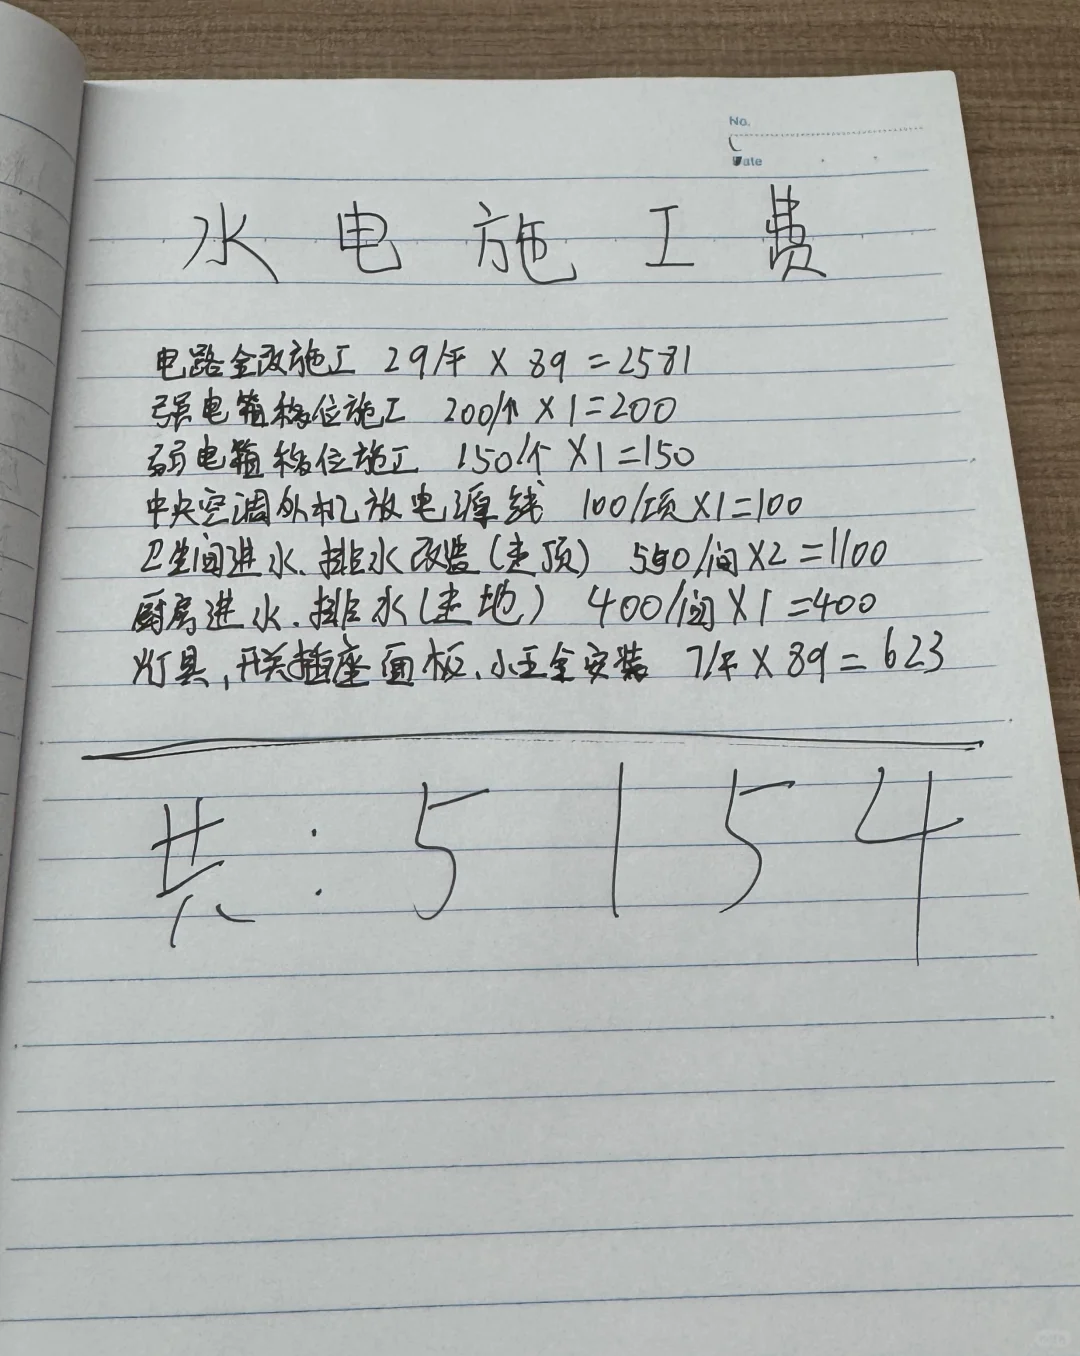 No.
Date
水电施工费
电路全改施工 29/平 × 89 = 2581
强电箱移位施工 200/个 × 1 = 200
弱电箱移位施工 150/个 × 1 = 150
中央空调外机放电源线 100/项 × 1 = 100
卫生间进水、排水改造(走顶) 550/间 × 2 = 1100
厨房进水、排水(走地) 400/间 × 1 = 400
灯具,开关插座面板、小五金安装 7/平 × 89 = 623
共: 5154